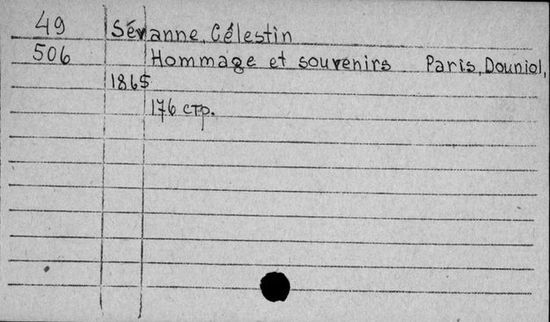 49 Sévanne, Célestin
506 Hommage et souvenirs Paris, Douniol,
1865
176 стр.